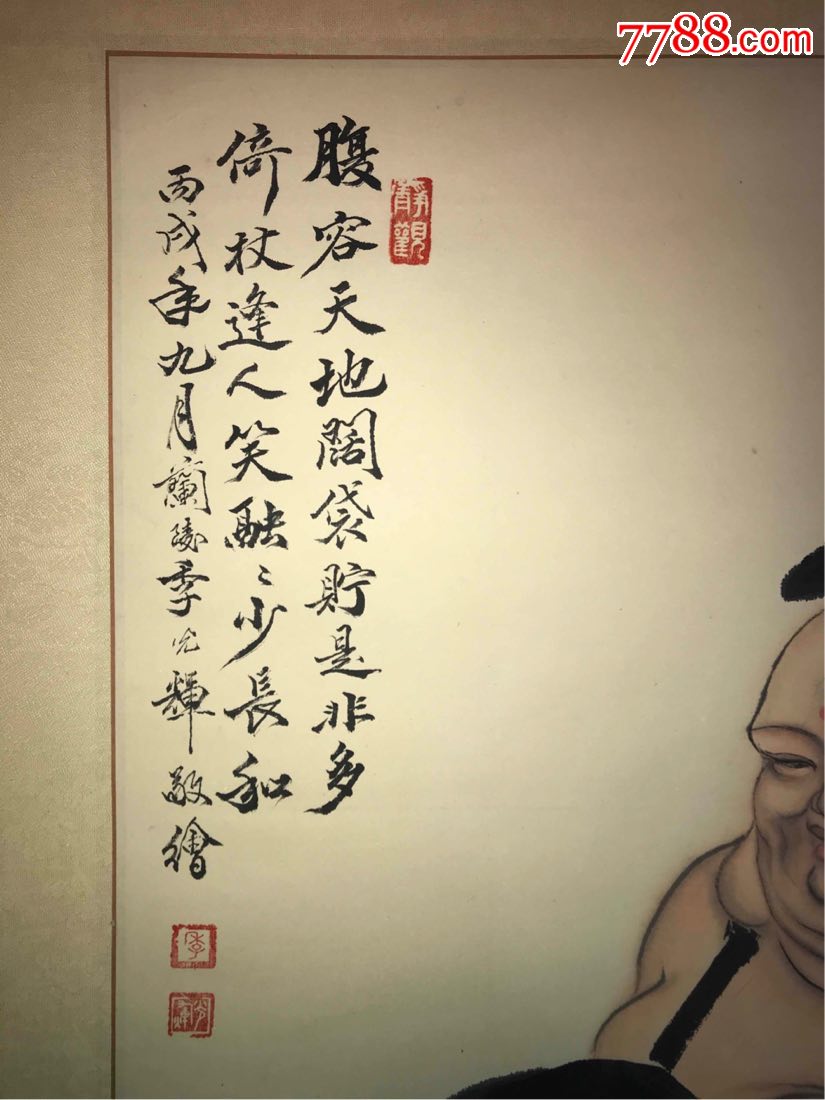 7788.com
靜觀
腹容天地闊袋貯是非多
倚杖逢人笑融〻少長和
丙戌年九月蘭陵季光輝敬繪
季
光輝